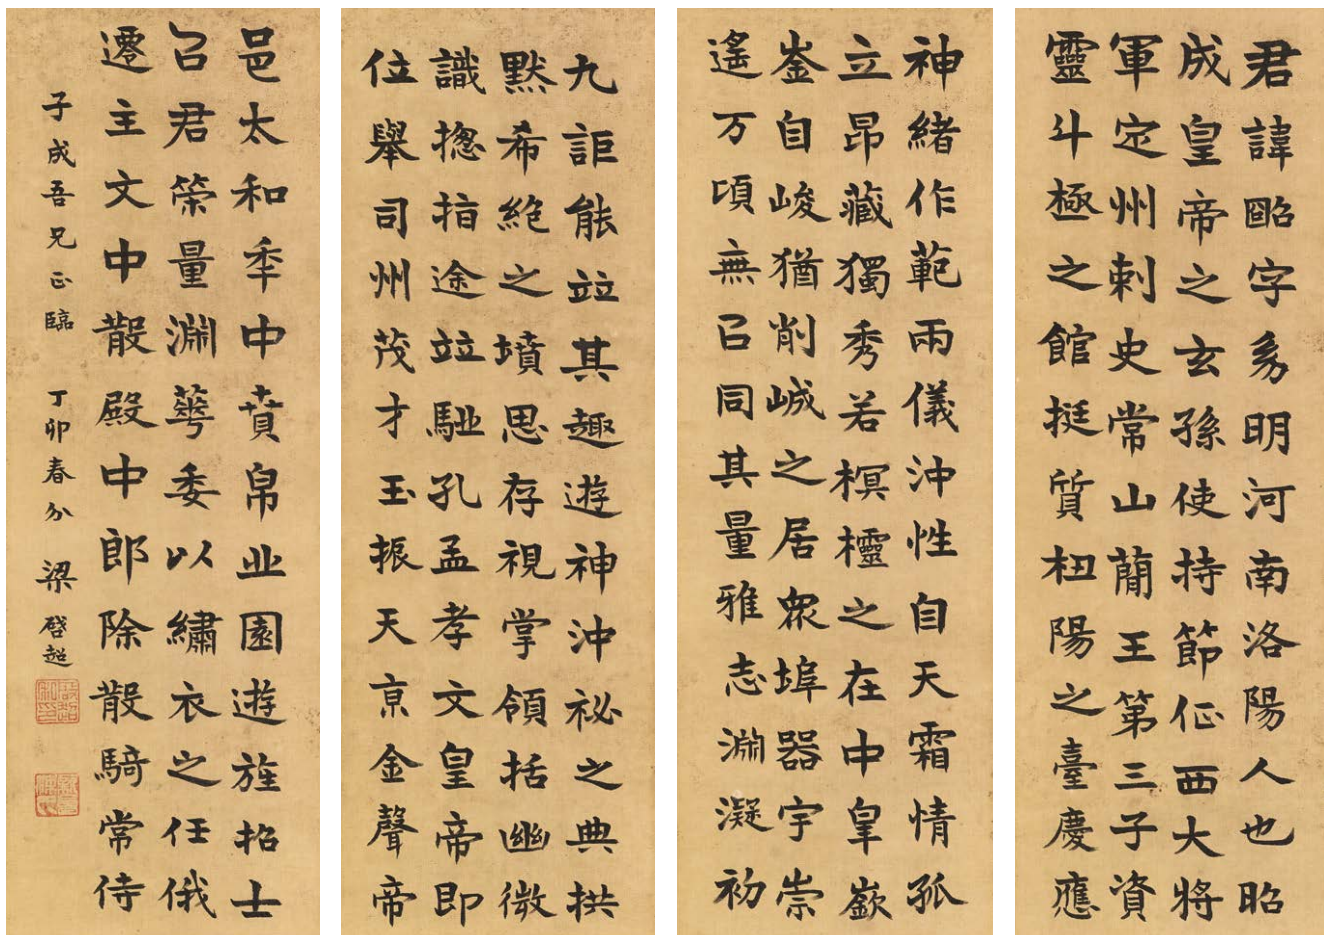 君諱昭字幼明河南洛陽人也昭
成皇帝之玄孫使持節征西大將
軍定州刺史常山蕑王第三子資
靈斗極之館挺質杻陽之臺慶應
神緒作範兩儀沖性自天霜情孤
立昂藏獨秀若榠櫺之在中皐嶔
崟自峻猶削峸之居衆埠器宇崇
遙万頃無㠯同其量雅志淵凝初
九詎能竝其趣遊神沖祕之典拱
默希絶之墳思存視掌領括幽微
識揔指途竝駈孔孟孝文皇帝即
位舉司州茂才玉振天京金聲帝
邑太和秊中賁帛业園遊旌招士
㠯君榮量淵蕚委以繡衣之任俄
遷主文中散殿中郎除散騎常侍
子成吾兄正臨 丁卯春分 梁啓超